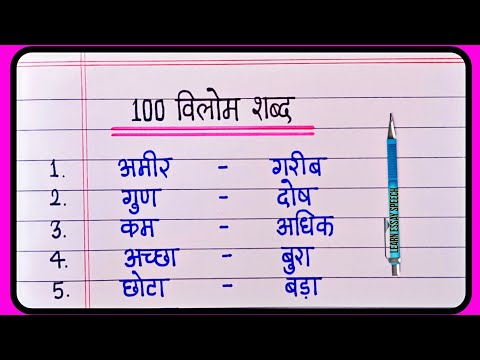 100 विलोम शब्द
1. अमीर - गरीब
2. गुण - दोष
3. कम - अधिक
4. अच्छा - बुरा
5. छोटा - बड़ा
LEARN ESSAY SPEECH